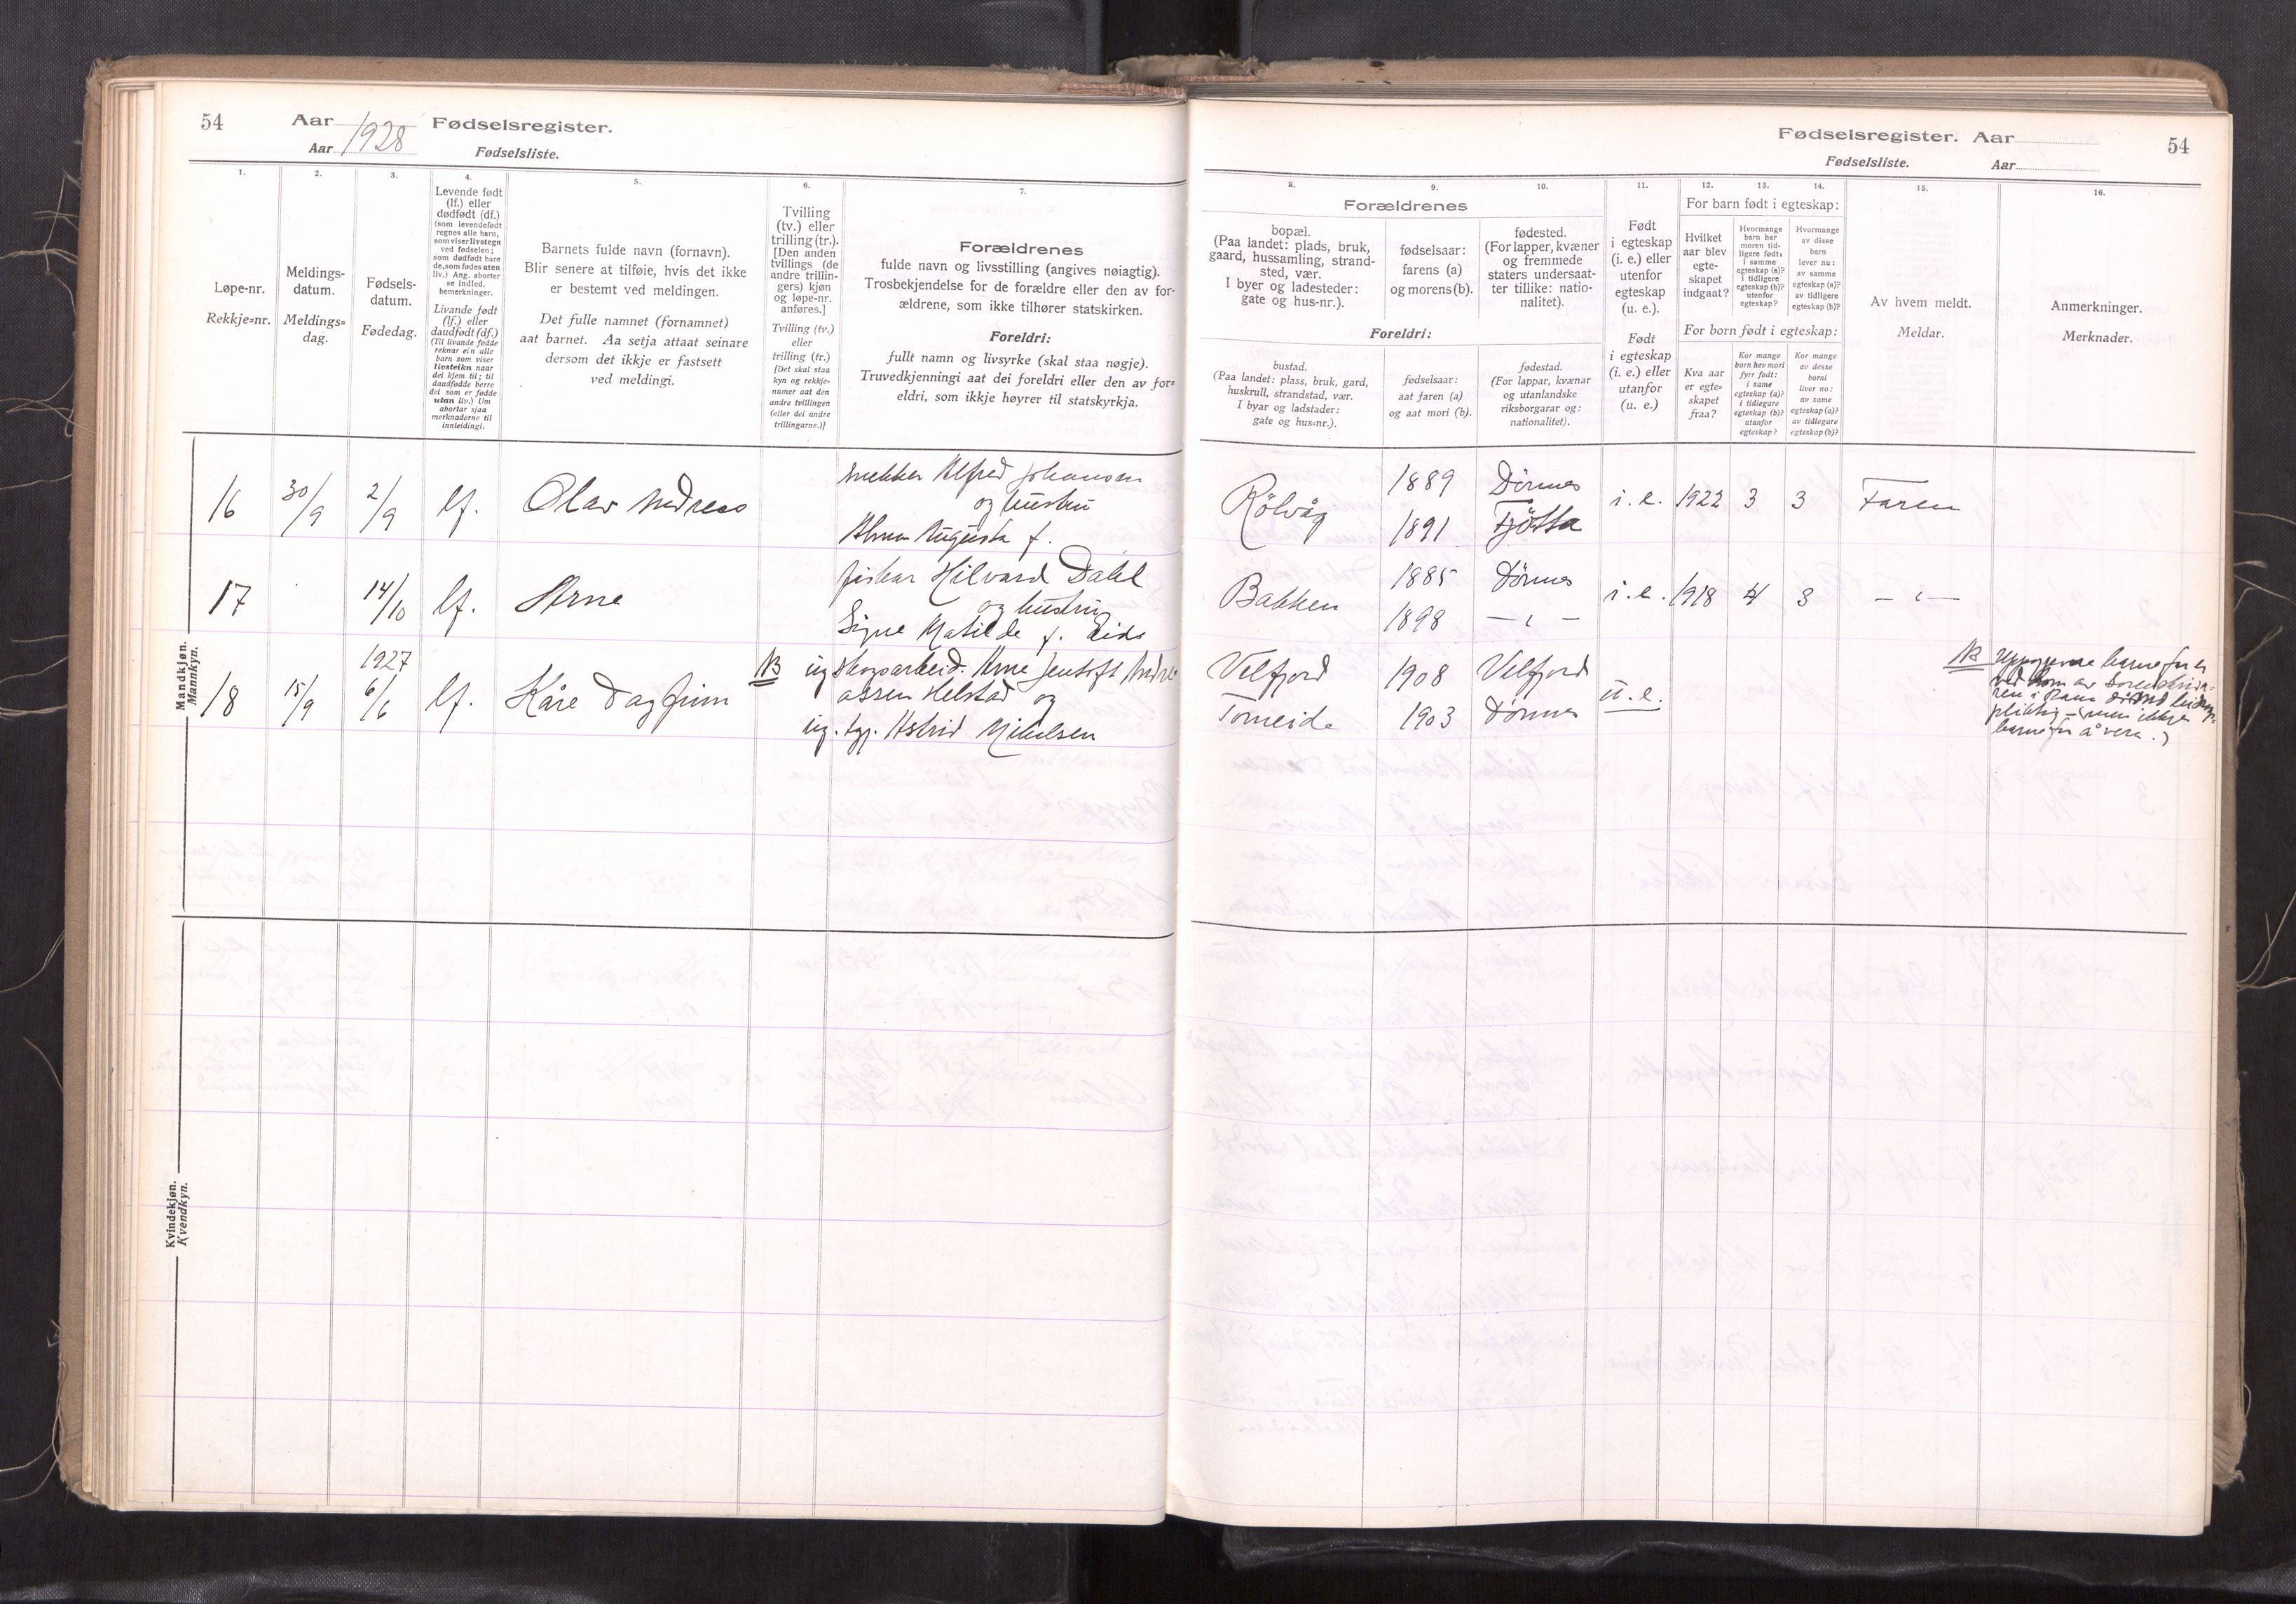 54
Aar 1928 Fødselsregister.
Aar Fødselsliste.
1.
Løpe-nr.
Rekkje=nr.
2.
Meldings-
datum.
Meldings=
dag.
3.
Fødsels-
datum.
Fødedag.
4.
Levende født
(lf.) eller
dødfødt (df.)
(som levendefødt
regnes alle barn,
som viser livstegn
ved fødselen;
som dødfødt bare
de, som fødes uten
liv.) Ang. aborter
se indled.
bemerkninger.
Livande født
(lf.) eller
daudfødt (df.)
(Til livande fødde
reknar ein alle
barn som viser
livsteikn naar
dei kjem til; til
daudfødde berre
dei som er fødde
utan liv.) Um
abortar sjaa
merknaderne til
innleidingi.
5.
Barnets fulde navn (fornavn).
Blir senere at tilføie, hvis det ikke
er bestemt ved meldingen.
Det fulle namnet (fornamnet)
aat barnet. Aa setja attaat seinare
dersom det ikkje er fastsett
ved meldingi.
6.
Tvilling
(tv.) eller
trilling (tr.).
[Den anden
tvillings (de
andre trillin-
gers) kjøn
og løpe-nr.
anføres.]
Tvilling (tv.)
eller
trilling (tr.)
[Det skal staa
kyn og rekkje-
numer aat den
andre tvillingen
(eller dei andre
trillingarne.)]
7.
Forældrenes
fulde navn og livsstilling (angives nøiagtig).
Trosbekjendelse for de forældre eller den av for-
ældrene, som ikke tilhører statskirken.
Foreldri:
fullt namn og livsyrke (skal staa nøgje).
Truvedkjenningi aat dei foreldri eller den av for=
eldri, som ikkje høyrer til statskyrkja.
Mandkjøn.
Mannkyn.
16 30/9 2/9 lf. Olav Andreas
Alfred Johansen
og hustru
Alma Augusta f.
17 14/10 lf. Arne
fiskar Hilvard Dahl
og hustru
Signe Matilde f. Eide
1927
18 15/9 6/6 lf. Kåre Dagfinn NB
ug skogsarbeid. Arne Jentoft Andre-
assen Helstad og
ug. tgj. Astrid Mikalsen
Kvindekjøn.
Kvendkyn.
Fødselsregister. Aar 54
Fødselsliste. Aar
8.
9.
10.
Forældrenes
bopæl.
(Paa landet: plads, bruk,
gaard, hussamling, strand-
sted, vær.
I byer og ladesteder:
gate og hus-nr.).
fødselsaar:
farens (a)
og morens (b).
fødested.
(For lapper, kvæner
og fremmede
staters undersaat-
ter tillike: natio-
nalitet).
Foreldri:
bustad.
(Paa landet: plass, bruk, gard,
huskrull, strandstad, vær.
I byar og ladstader:
gate og hus=nr.).
fødselsaar:
aat faren (a)
og aat mori (b).
fødestad.
(For lappar, kvænar
og utanlandske
riksborgarar og:
nationalitet).
11.
Født
i egteskap
(i. e.) eller
utenfor
egteskap
(u. e.).
Født
i egteskap
(i. e.) eller
utanfor
(u. e.)
12.
13.
14.
For barn født i egteskap:
Hvilket
aar blev
egte-
skapet
indgaat?
Hvormange
barn har
moren tid-
ligere født:
i samme
egteskap (a)?
i tidligere
egteskap (b)?
utenfor
egteskap?
Hvormange
av disse
barn
lever nu:
av samme
egteskap (a)?
av tidligere
egteskap (b)?
For born født i egteskap:
Kva aar
er egte=
skapet
fraa?
Kor mange
born hev mori
fyrr født:
i same
egteskap (a)?
i tidlegare
egteskap (b)?
utanfor
egteskap?
Kor mange
av desse
borni
liver no:
av same
egteskap (a)?
av tidlegare
egteskap (b)?
15.
Av hvem meldt.
Meldar.
16.
Anmerkninger.
Merknader.
Rölvåg 1889 Dönnes i. e. 1922 3 3 Faren
1891 Tjötta
Bakken 1885 Dönnes i. e. 1918 4 3 — " —
1898 — " —
Velfjord 1908 Velfjord u. e.
Tomeide 1903 Dönnes
NB Uppgjevne barnefar er
ved dom av Sorenskriva-
ren i Rana bidrags-
pliktig – (men ikkje
barnefar å vera.)